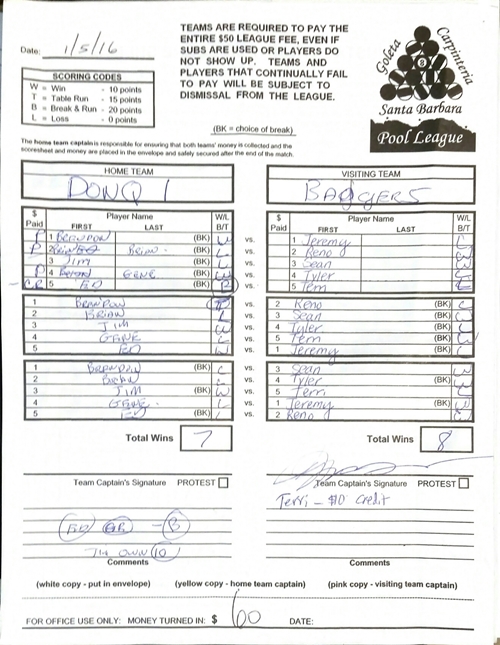 Date: 1/5/16
TEAMS ARE REQUIRED TO PAY THE
ENTIRE $50 LEAGUE FEE, EVEN IF
SUBS ARE USED OR PLAYERS DO
NOT SHOW UP. TEAMS AND
PLAYERS THAT CONTINUALLY FAIL
TO PAY WILL BE SUBJECT TO
DISMISSAL FROM THE LEAGUE.
(BK = choice of break)
SCORING CODES
W = Win - 10 points
T = Table Run - 15 points
B = Break & Run - 20 points
L = Loss - 0 points
Goleta
Carpinteria
8
Santa Barbara
Pool League
The home team captain is responsible for ensuring that both teams' money is collected and the
scoresheet and money are placed in the envelope and safely secured after the end of the match.
HOME TEAM
DONQ 1
$ Paid Player Name FIRST LAST W/L B/T
P 1 BRANDON (BK) vs.
P 2 Brian vs.
3 Jim (BK) vs.
P 4 GENE (BK) W vs.
CR 5 ED (BK) B vs.
1 BRANDON vs.
2 BRIAN L vs.
3 JIM W vs.
4 GENE L vs.
5 ED W vs.
1 BRANDON (BK) L vs.
2 BRIAN vs.
3 JIM (BK) W vs.
4 GENE L vs.
5 ED (BK) vs.
Total Wins 7
Team Captain's Signature PROTEST
ED B
JIM OWN 10
Comments
VISITING TEAM
BANGERS
$ Paid Player Name FIRST LAST W/L B/T
1 Jeremy L
2 Reno
3 Sean
4 Tyler L
5 Terri L
2 Reno (BK) L
3 Sean (BK) W
4 Tyler (BK) L
5 Terri (BK) W
1 Jeremy (BK) L
3 Sean W
4 Tyler (BK) W
5 Terri L
1 Jeremy (BK) W
2 Reno W
Total Wins 8
Team Captain's Signature PROTEST
Terri - $10 Credit
Comments
(white copy - put in envelope) (yellow copy - home team captain) (pink copy - visiting team captain)
FOR OFFICE USE ONLY: MONEY TURNED IN: $ 60 DATE: